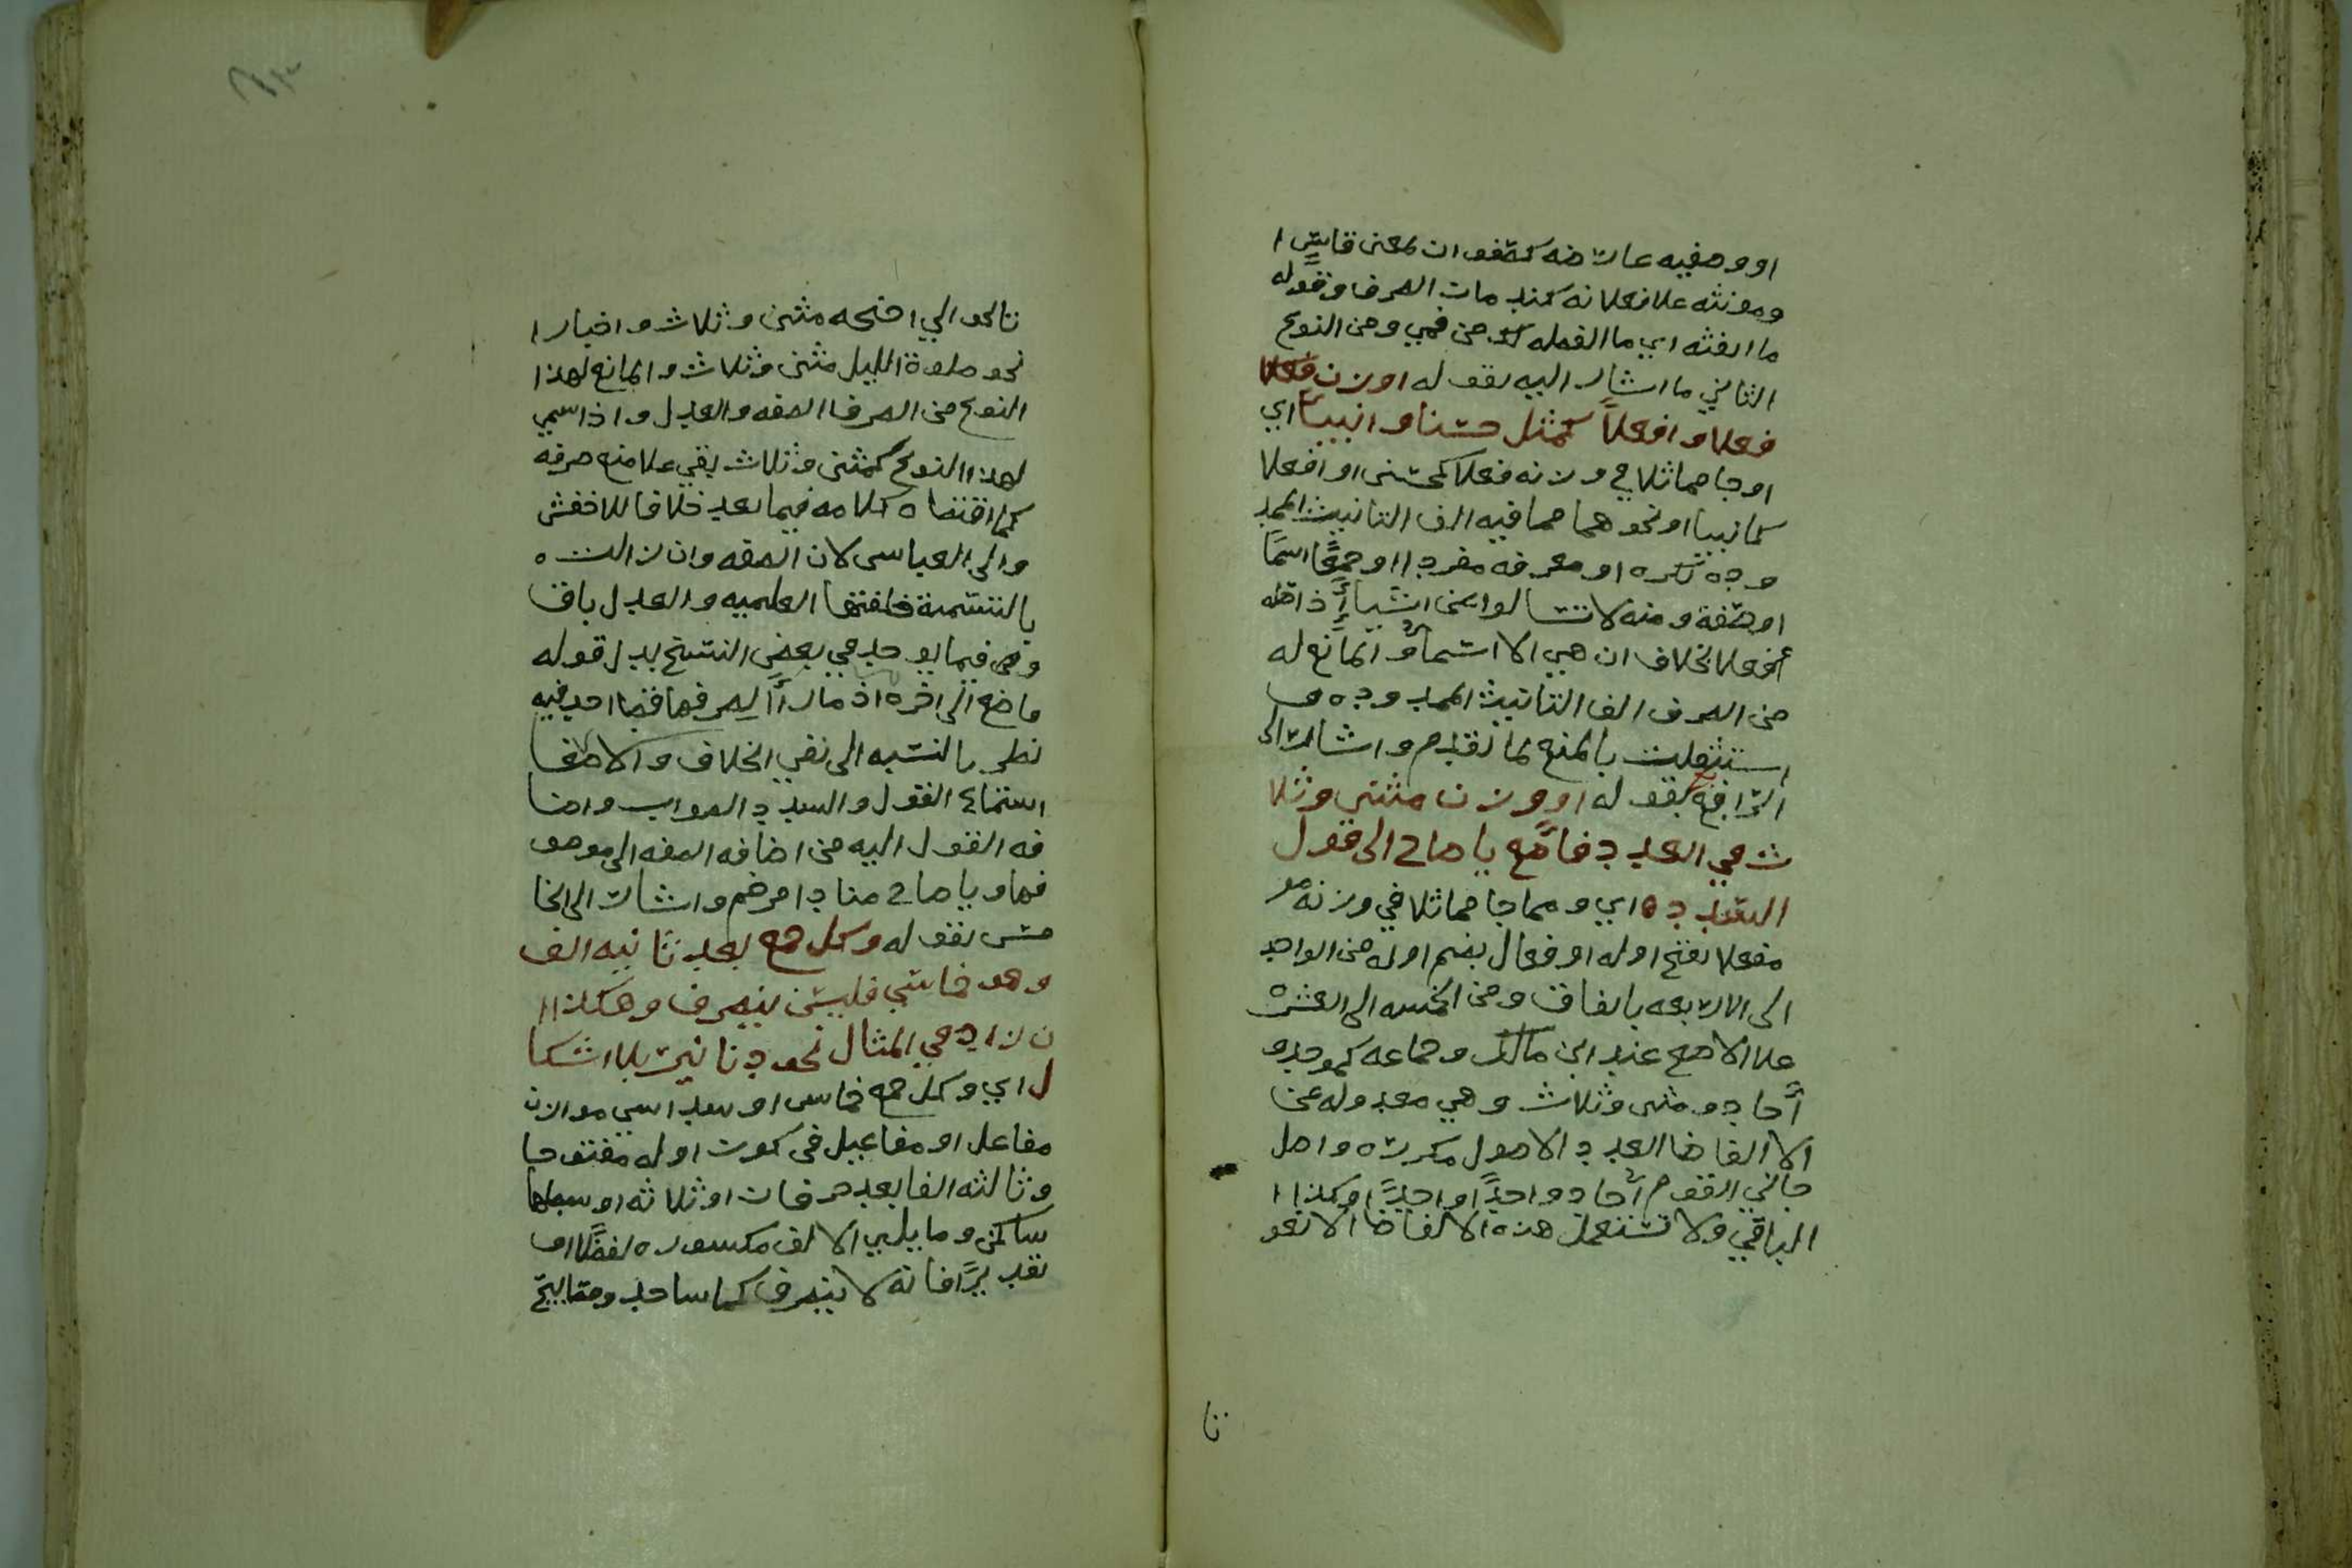 او وصفيه عارضه كصفوان بمعنى قاسٍ ا
ومونثه علا فعلانه كندمان الصرف وقوله
ما الفته اي ما القمله من فمي ومن النوع
الثاني ما اشار اليه بقوله او وزن فعلا
فعلا وافعلاً كمثل حسنا وانبيا اي
او جا مماثلا في وزنه فعلا كحسنى او افعلا
كانبيا او نحوهما مما فيه الف التانيث المم
دوده نكره او معرفه مفردا او جمعًا اسمًا
او صفة ومنه لا تسالوا عن اشياء اذ اصله
افعلا بخلاف ان هي الا اسماء والمانع له
من الصرف الف التانيث الممدوده و
استقلت بالمنع لما تقدم واشار الى
الرابع بقوله او وزن مثنى وثلا
ث في العدد فاصغ يا صاح الى قول
السدد ه اي ومما جا مماثلا في وزنه
مفعلا بفتح اوله او فعال بضم اوله من الواحد
الى الاربعه باتفاق ومن الخمسه الى العشره
علا الاصح عند ابن مالك وجماعه كموحد و
أحاد ومثنى وثلاث وهي معدوله عن
الالفاظ العدد الاصول مكرره واصل
جاني القوم أحاد واحدًا واحدًا وكذا ا
لباقي ولا تستعمل هذه الالفاظ الا نعو
تا
تا نحو اولي اجنحه مثنى وثلاث واخبارا
نحو صلوة الليل مثنى وثلاث والمانع لهذا
النوع من الصرف الصفه والعدل واذا سمي
بهذا النوع كمثنى وثلاث بقي علا منع صرفه
كما اقتضاه كلامه فيما بعد خلافا للاخفش
وابي العباس لان الصفه وان زالت ه
بالتسمية فخلفتها العلميه والعدل باق
وفي فيما يوجد في بعض النسخ بدل قوله
فاصغ الى اخره اذ ما رأا لصرفها قط احد فيه
نظر بالنسبه الى نفي الخلاف والاصغا
استماع القول والسدد الصواب واضا
فه القول اليه من اضافه الصفه الى موصو
فها ويا صاح منادا مرخم واشار الى الخا
مس بقوله وكل جمع بعد ثانيه الف
وهو خماسي فليس ينصرف وهكذا ا
ن زاد في المثال نحو دنانير بلا اشكا
ل اي وكل جمع خماسي او سداسي موازن
مفاعل او مفاعيل في كون اوله مفتوحا
وثالثه الفا بعد حرفان او ثلاثه اوسطها
ساكن وما يلي الالف مكسوره لفظًا او
تقديرًا فانه لا ينصرف كمساجد ومصابيح